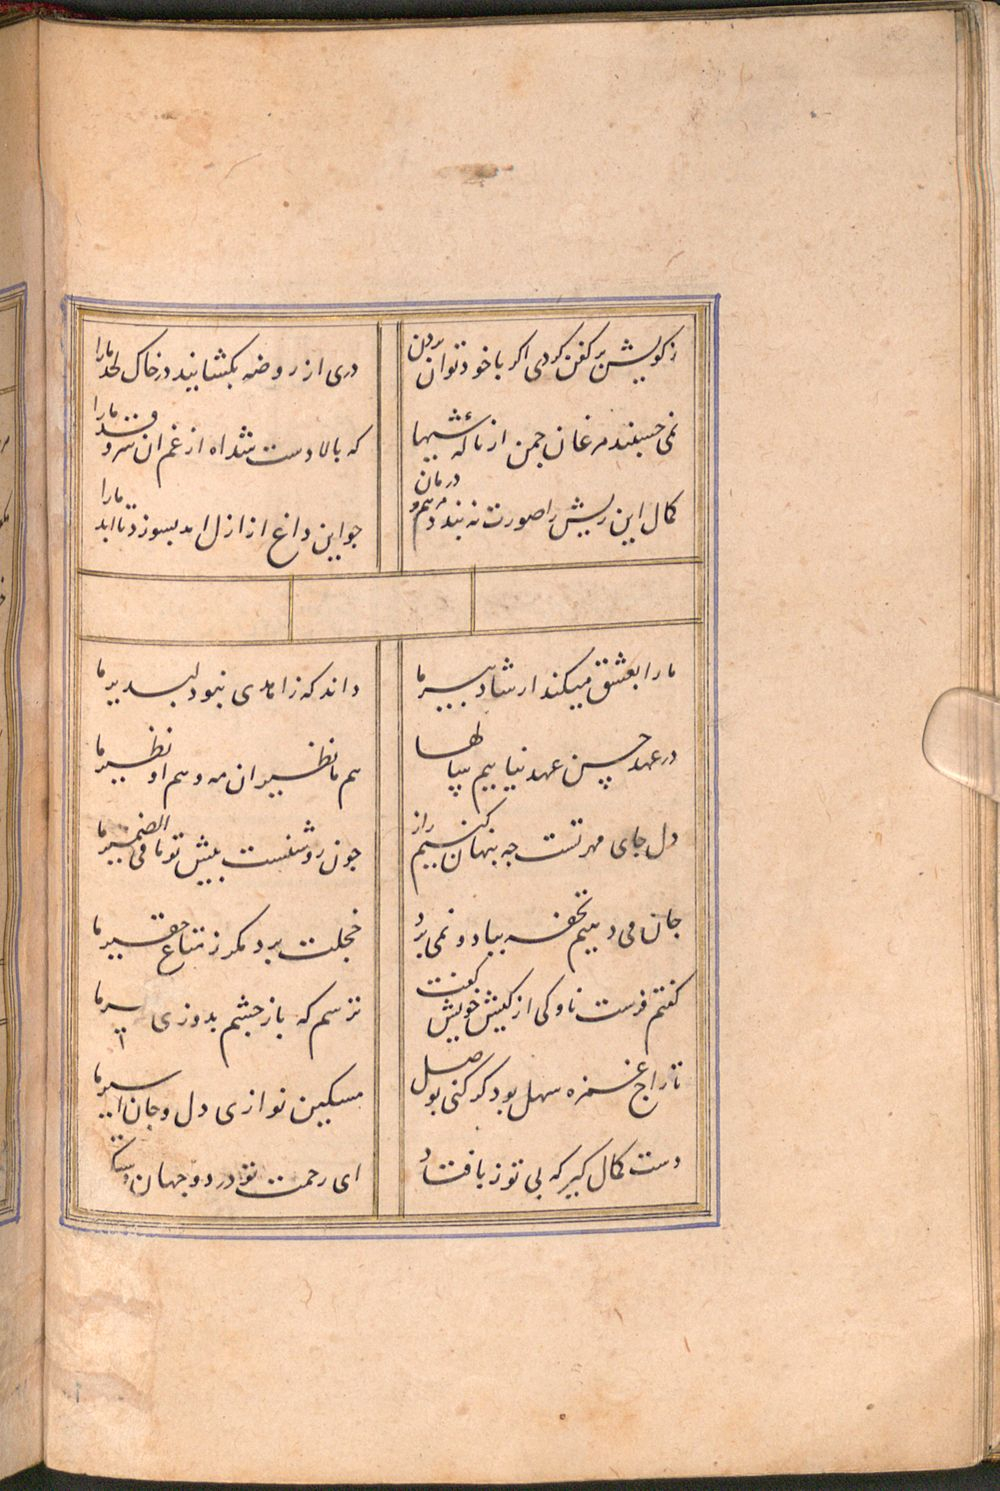 ز کویش بر کفن کردی اگر با خود توان بردن دری از روضه بکشایند در خاک لحد ما را
نمی خسبند مرغان چمن از ناله شبها که بالا دست شد اه از غم ان سرو قد ما را
کمال این ریش را صورت نه بندد مرهم و درمان جو این داغ از ازل امد بسوزد تا ابد ما را
ما را بعشق میکند ارشاد پیر ما داند که زاهدی نبود دلپذیر ما
در عهد حسن عهد نیاییم سالها هم ما نظیر ان مه و هم او نظیر ما
دل جای مهر تست چه پنهان کنیم راز جون روشنست پیش تو ما فی الضمیر ما
جان می دهیم تحفه بباد و نمی برد خجلت برد مکر ز متاع حقیر ما
کفتم فرست ناوکی از کیش خویش کفت ترسم که باز جشم بدوزی ز تیر ما
تاراج غمزه سهل بود کر کنی بوصل مسکین نوازی دل و جان اسیر ما
دست کمال کیر که بی تو ز پا فتاد ای رحمت تو در دو جهان دستکیر ما